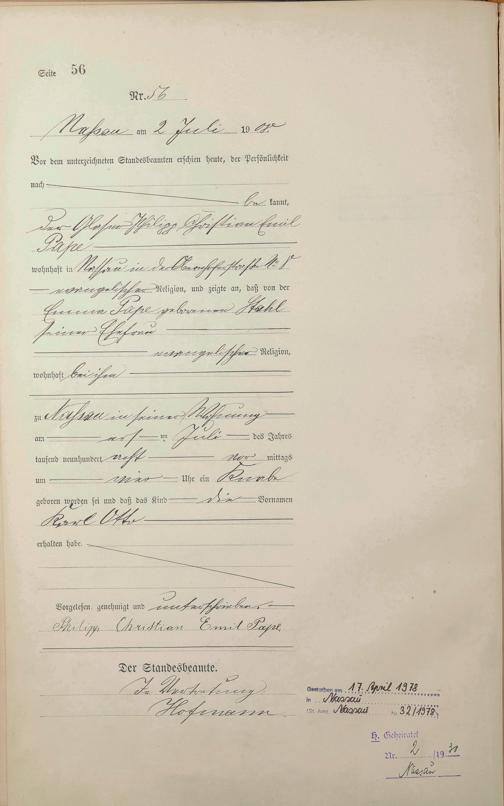 Seite 56
Nr. 56
Nassau am 2 Juli 1908
Vor dem unterzeichneten Standesbeamten erschien heute, der Persönlichkeit
nach
bekannt,
der Glaser Philipp Christian Emil
Pape
wohnhaft in Nassau in der Nr. 8
evangelischer Religion, und zeigte an, daß von der
Emma Pape geborenen Stahl
seiner Ehefrau
evangelischer Religion,
wohnhaft bei ihm
zu Nassau in seiner Wohnung
am ten Juli des Jahres
tausend neunhundert acht vor mittags
um vier Uhr ein Knabe
geboren worden sei und daß das Kind die Vornamen
Karl Otto
erhalten habe.
Vorgelesen, genehmigt und unterschrieben
Philipp Christian Emil Pape
Der Standesbeamte.
In Vertretung
Hofmann
Gestorben am 17. April 1978
in Nassau
Nassau Nr. 32/1978
H. Geheiratet
Nr. 2 /1930
Nassau